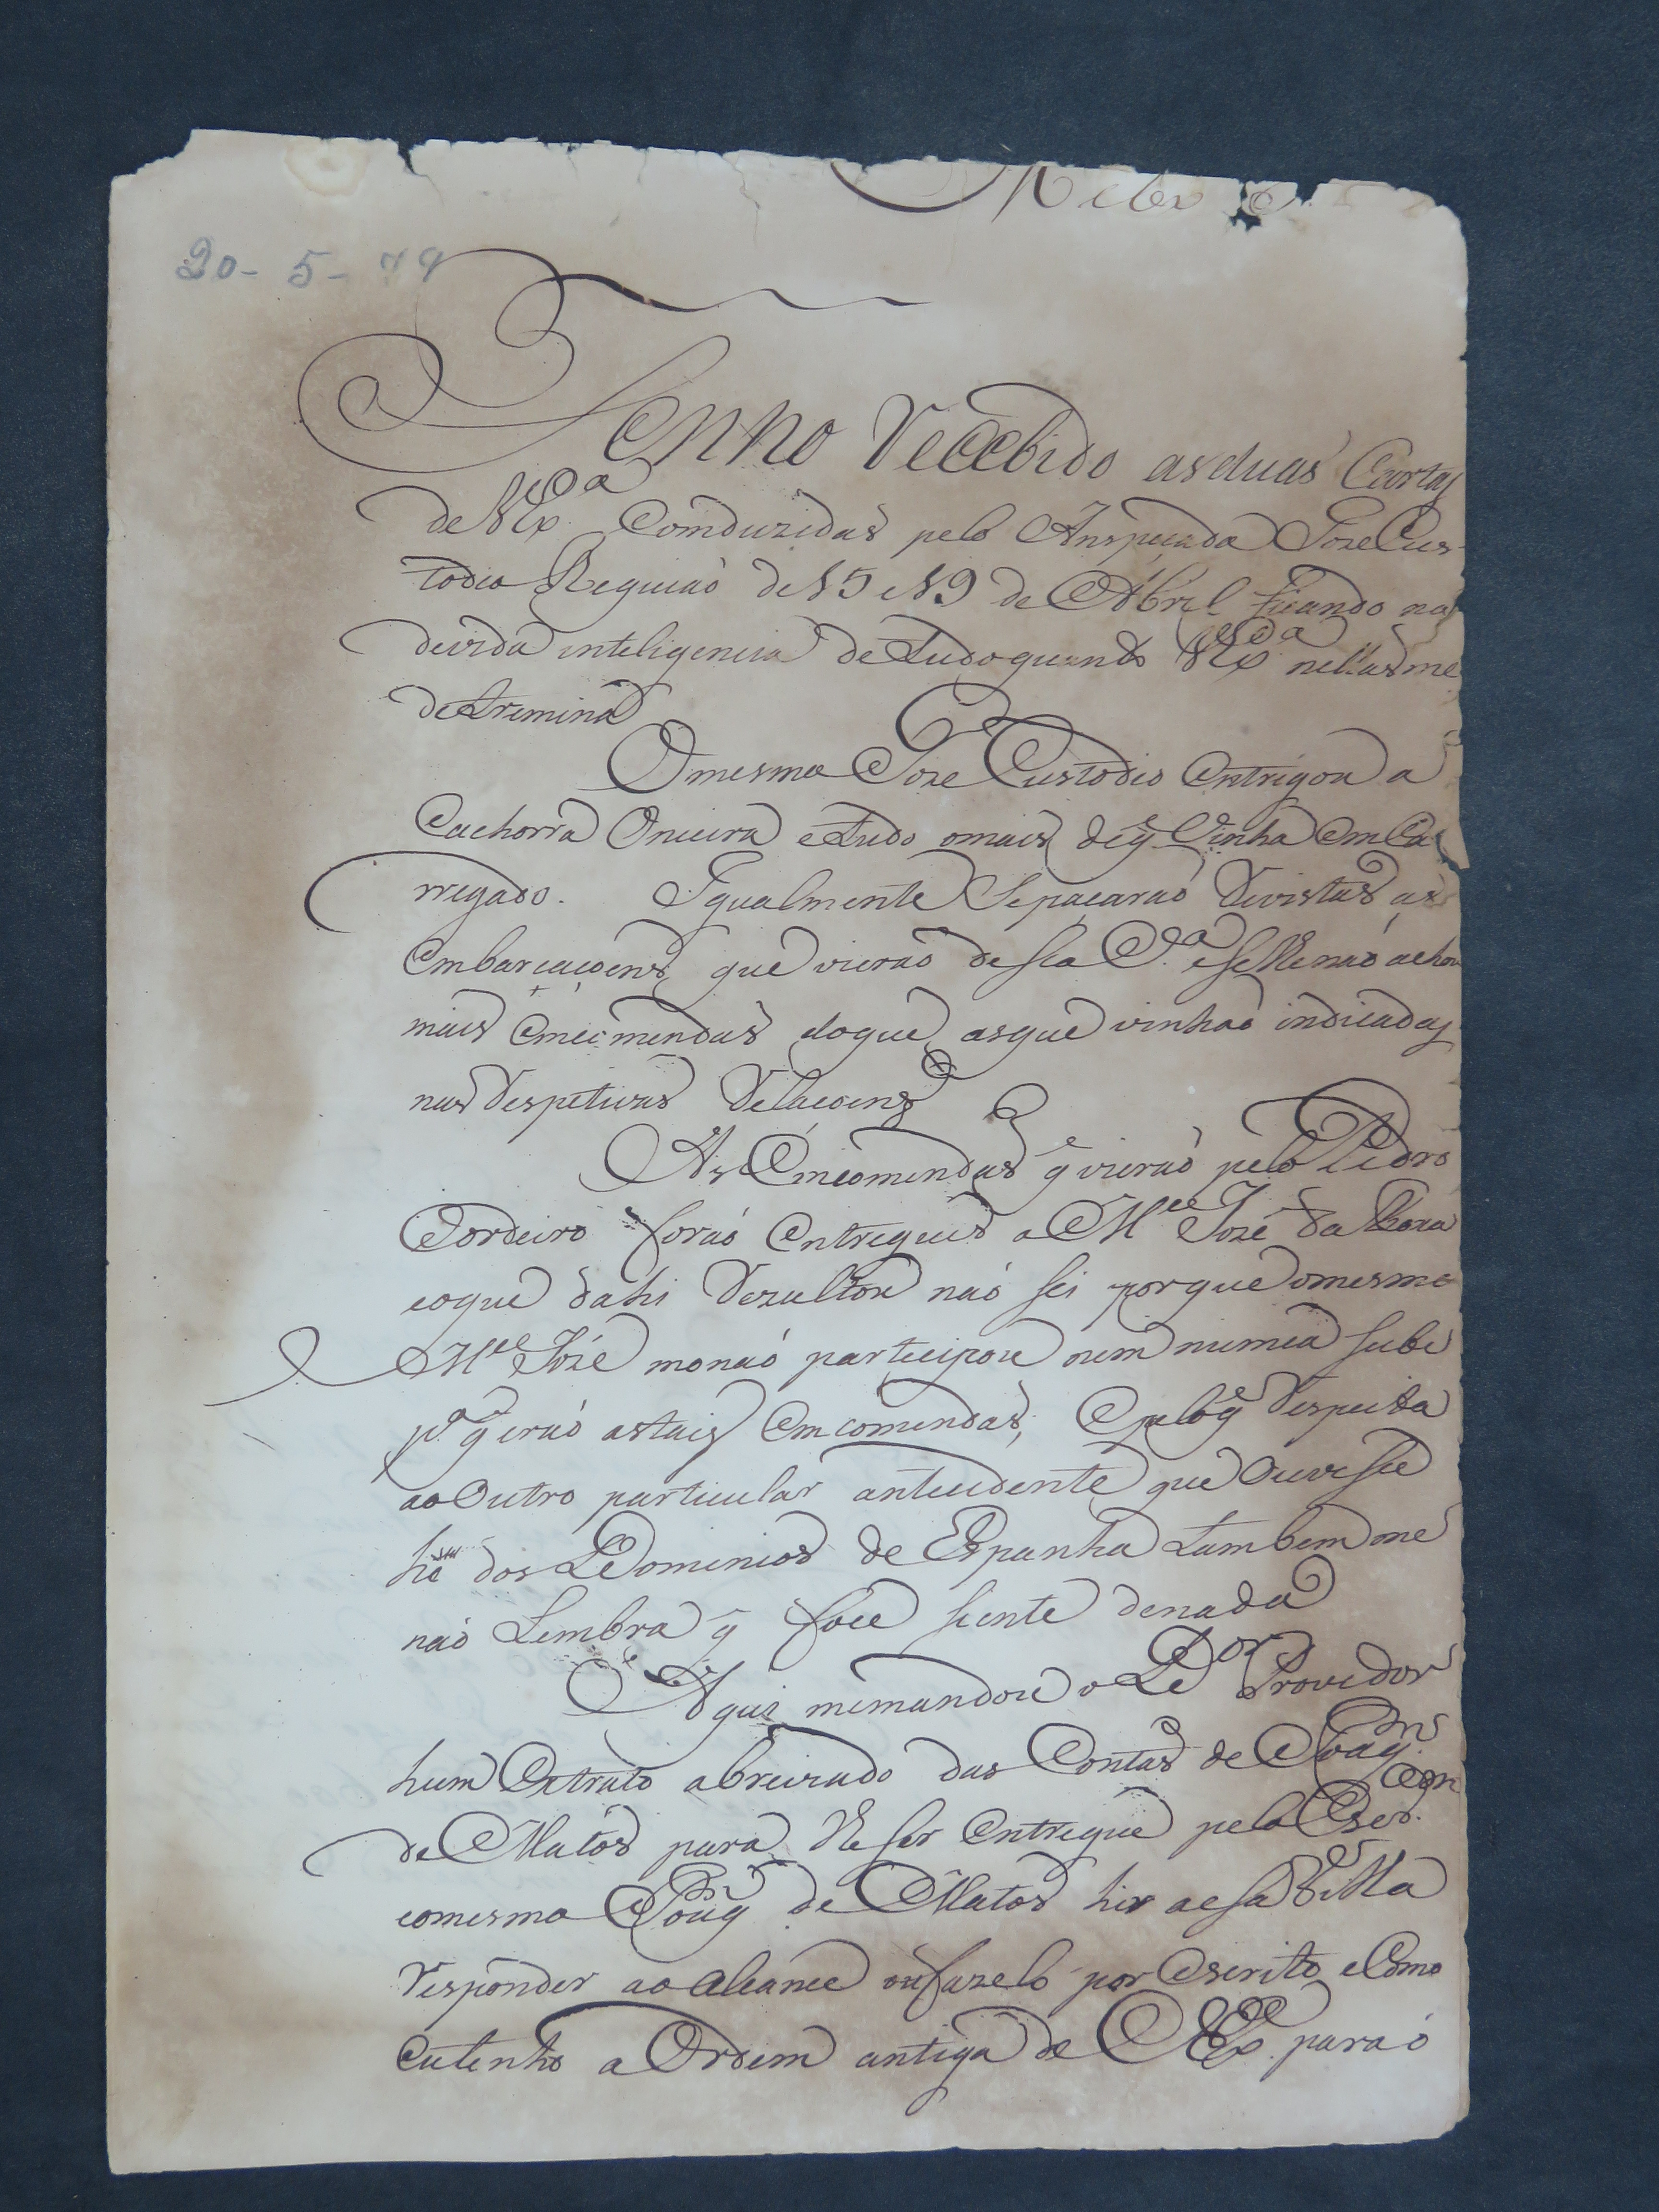 20-5-79
Tenho Recebido as duas Cartas
de V Exca Comduzidas pelo Anspeçada Joze Cus-
todio Reguiaó de 15 e 19 de Abril ficando na
devida inteligencia de tudo quanto V Exca nellas me
detremina
O mesmo Joze Custodio Entregou a
Cachorra Onceira e tudo o mais de q̃ Vinha Emca
rregado. Igualmente Se paçaraó Revistas as
Embarcaçoens que vieraó desta e selle naó achou
mais Emcomendas doque as que vinhaó indicadas
nas Respetivas Relaçoens
As Emcomendas q̃ vieraó pelo Pedro
Cordeiro foraó Entregues a Mel Joze da
eoque dahi Rezultou naó sei porque o mesmo
Mel Joze monaó participou nem numca sube
pa q̃ eraó as tais Emcomendas, E pelo q̃ Respeita
ao Outro particular antecedente que Ouvesse
hé dos Dominios de Espanha tambem me
naó Lembra q̃ foce siente de nada
Aqui memandou o Dor Provedor
hum Extrato abreviado das Contas de Joaqm
de Matos para lhe ser Entregue pelo
eomesmo Joaq de Matos hir a essa Villa
Responder ao alcance ou fazelo por Escrito e Como
eu tenho a Ordem antiga de V Exca para ó